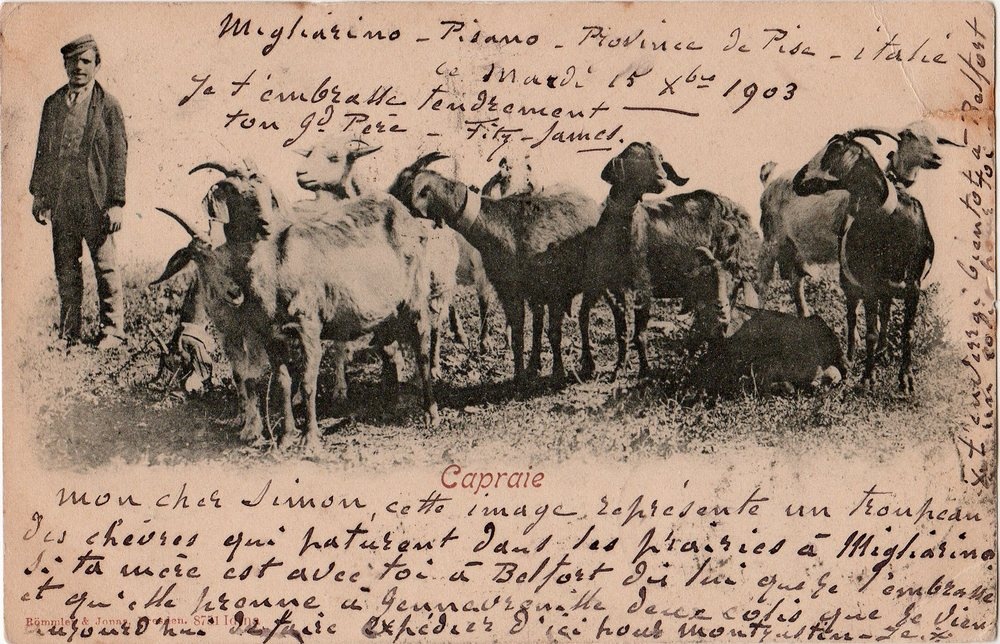 Migliarino - Pisano - Province de Pise - italie
ce Mardi 15 Xbre 1903
Je t'embrasse tendrement
ton Gd Père - Fitz-James.
Capraie
mon cher Simon, cette image représente un troupeau
des chèvres qui paturent dans les prairies à Migliarino
Si ta mère est avec toi à Belfort dis lui que je l'embrasse
et qu'elle prenne à deux colis que je viens
aujourd'hui de faire expédier d'ici pour
Römmler & Jonas, Dresden.
x t'enverrai bientôt à Belfort
un colis pour toi